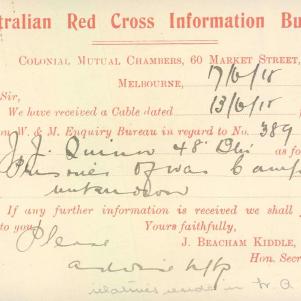 tralian Red Cross Information Bu
Colonial Mutual Chambers, 60 Market Street,
Melbourne, 17/6/18
Sir,
We have received a Cable dated 13/6/18
on W. & M. Enquiry Bureau in regard to No. 389
J. J. Quinn 48th Bn as fo
Prisoner of war Camp
unknown
If any further information is received we shall
to you. Yours faithfully,
Please J. Beacham Kiddle,
advise Hon. Secr
relatives reside in W. A